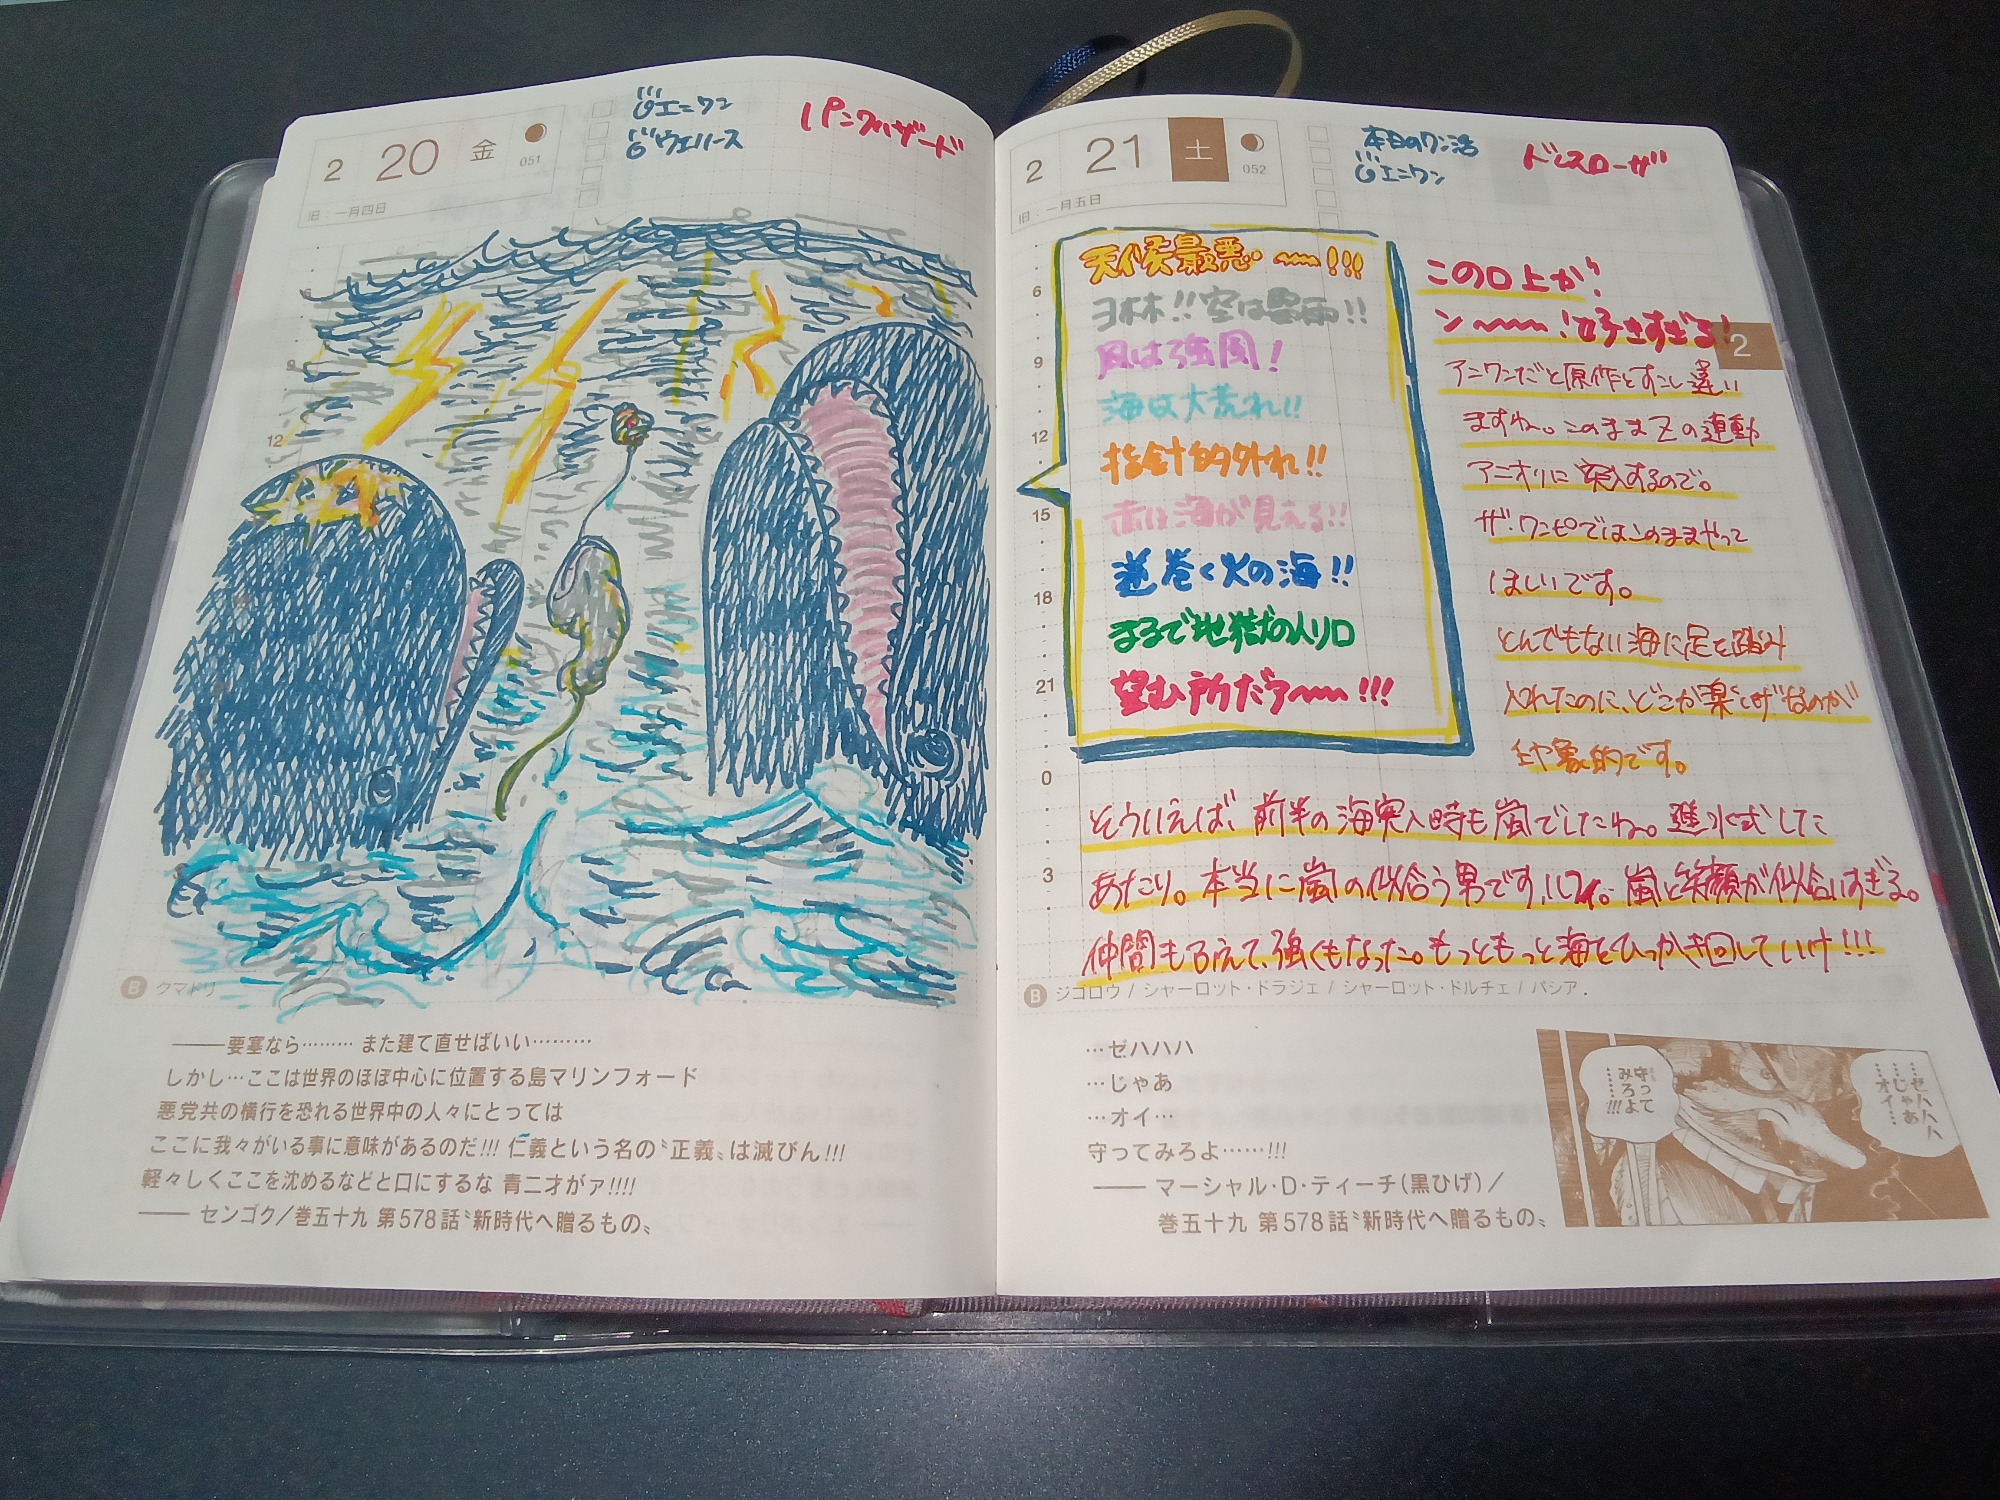 2 20 金
051
旧:一月四日
エニワン
ウエハース
パンクハザード
6
9
12
B クマドリ
───要塞なら……… また建て直せばいい………
しかし…ここは世界のほぼ中心に位置する島マリンフォード
悪党共の横行を恐れる世界中の人々にとっては
ここに我々がいる事に意味があるのだ!!! 仁義という名の〝正義〟は滅びん!!!
軽々しくここを沈めるなどと口にするな 青二才がァ!!!!
── センゴク/巻五十九 第578話〝新時代へ贈るもの〟
2 21 土
052
旧:一月五日
本日のワン活
エニワン
ドレスローザ
2
6
9
12
15
18
21
0
3
天候最悪〜!!!
ヨホホ!!空は雷雨!!
風は強風!
海は大荒れ!!
指針的外れ!!
赤い海が見える!!
逆巻く火の海!!
まるで地獄の入り口
望む所だァ〜!!!
この口上が!
ン〜!好きすぎる!
アニワンだと原作とすこし違い
ますね。このままZの連動
アニオリに突入するので。
ザ・ワンピではこのままやって
ほしいです。
とんでもない海に足を踏み
入れたのに、どこか楽しげなのが
印象的です。
そういえば、前半の海突入時も嵐でしたね。進水式した
あたり。本当に嵐の似合う男です、ルフィ。嵐と笑顔が似合いすぎる。
仲間もふえて、強くもなった。もっともっと海をひっかき回していけ!!!
B ジゴロウ / シャーロット・ドラジェ / シャーロット・ドルチェ / バシア.
…ゼハハハ
…じゃあ
…オイ…
守ってみろよ……!!!
── マーシャル・D・ティーチ(黒ひげ)/
巻五十九 第578話〝新時代へ贈るもの〟
…ゼハハハ
…じゃあ
…オイ…
守って
みろよ
……!!!